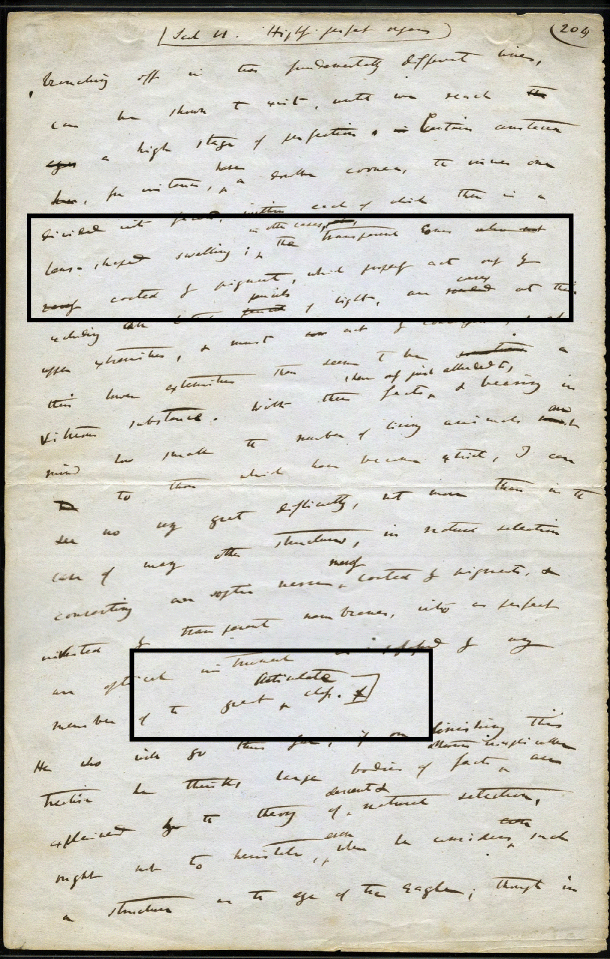 (Sect VI. Highly perfect organs) (204
branching off in two fundamentally different lines,
can be shown to exist, until we reach
a high stage of perfection. Certain crustacean
have
for instance, a double cornea, the inner one
divided into facets, within each of which there is a
in other cases,
lens-shaped swelling; the transparent cones
coated by pigment, which properly act only by
pencils convex
excluding lateral of light, are at their
upper extremities, & must act by convergence; & at
their lower extremities there seem to be a
here
vitreous substance. With these facts, & bearing in
mind how small the number of living animals
to those which have become extinct, I can
see no very great difficulty, not more than in the
case of many other structures, in natural selection
merely
converting an optic nerve coated by pigment, &
invested by transparent membrane, into as perfect
an optical instrument as is possessed by any
Articulate
member of the great class.
He who will go thus far, if on finishing this
treatise he thinks large bodies of facts, are
descent &
explained by the theory of natural selection,
ought not to hesitate, when he considers such
a structure as the eye of the Eagle; though in